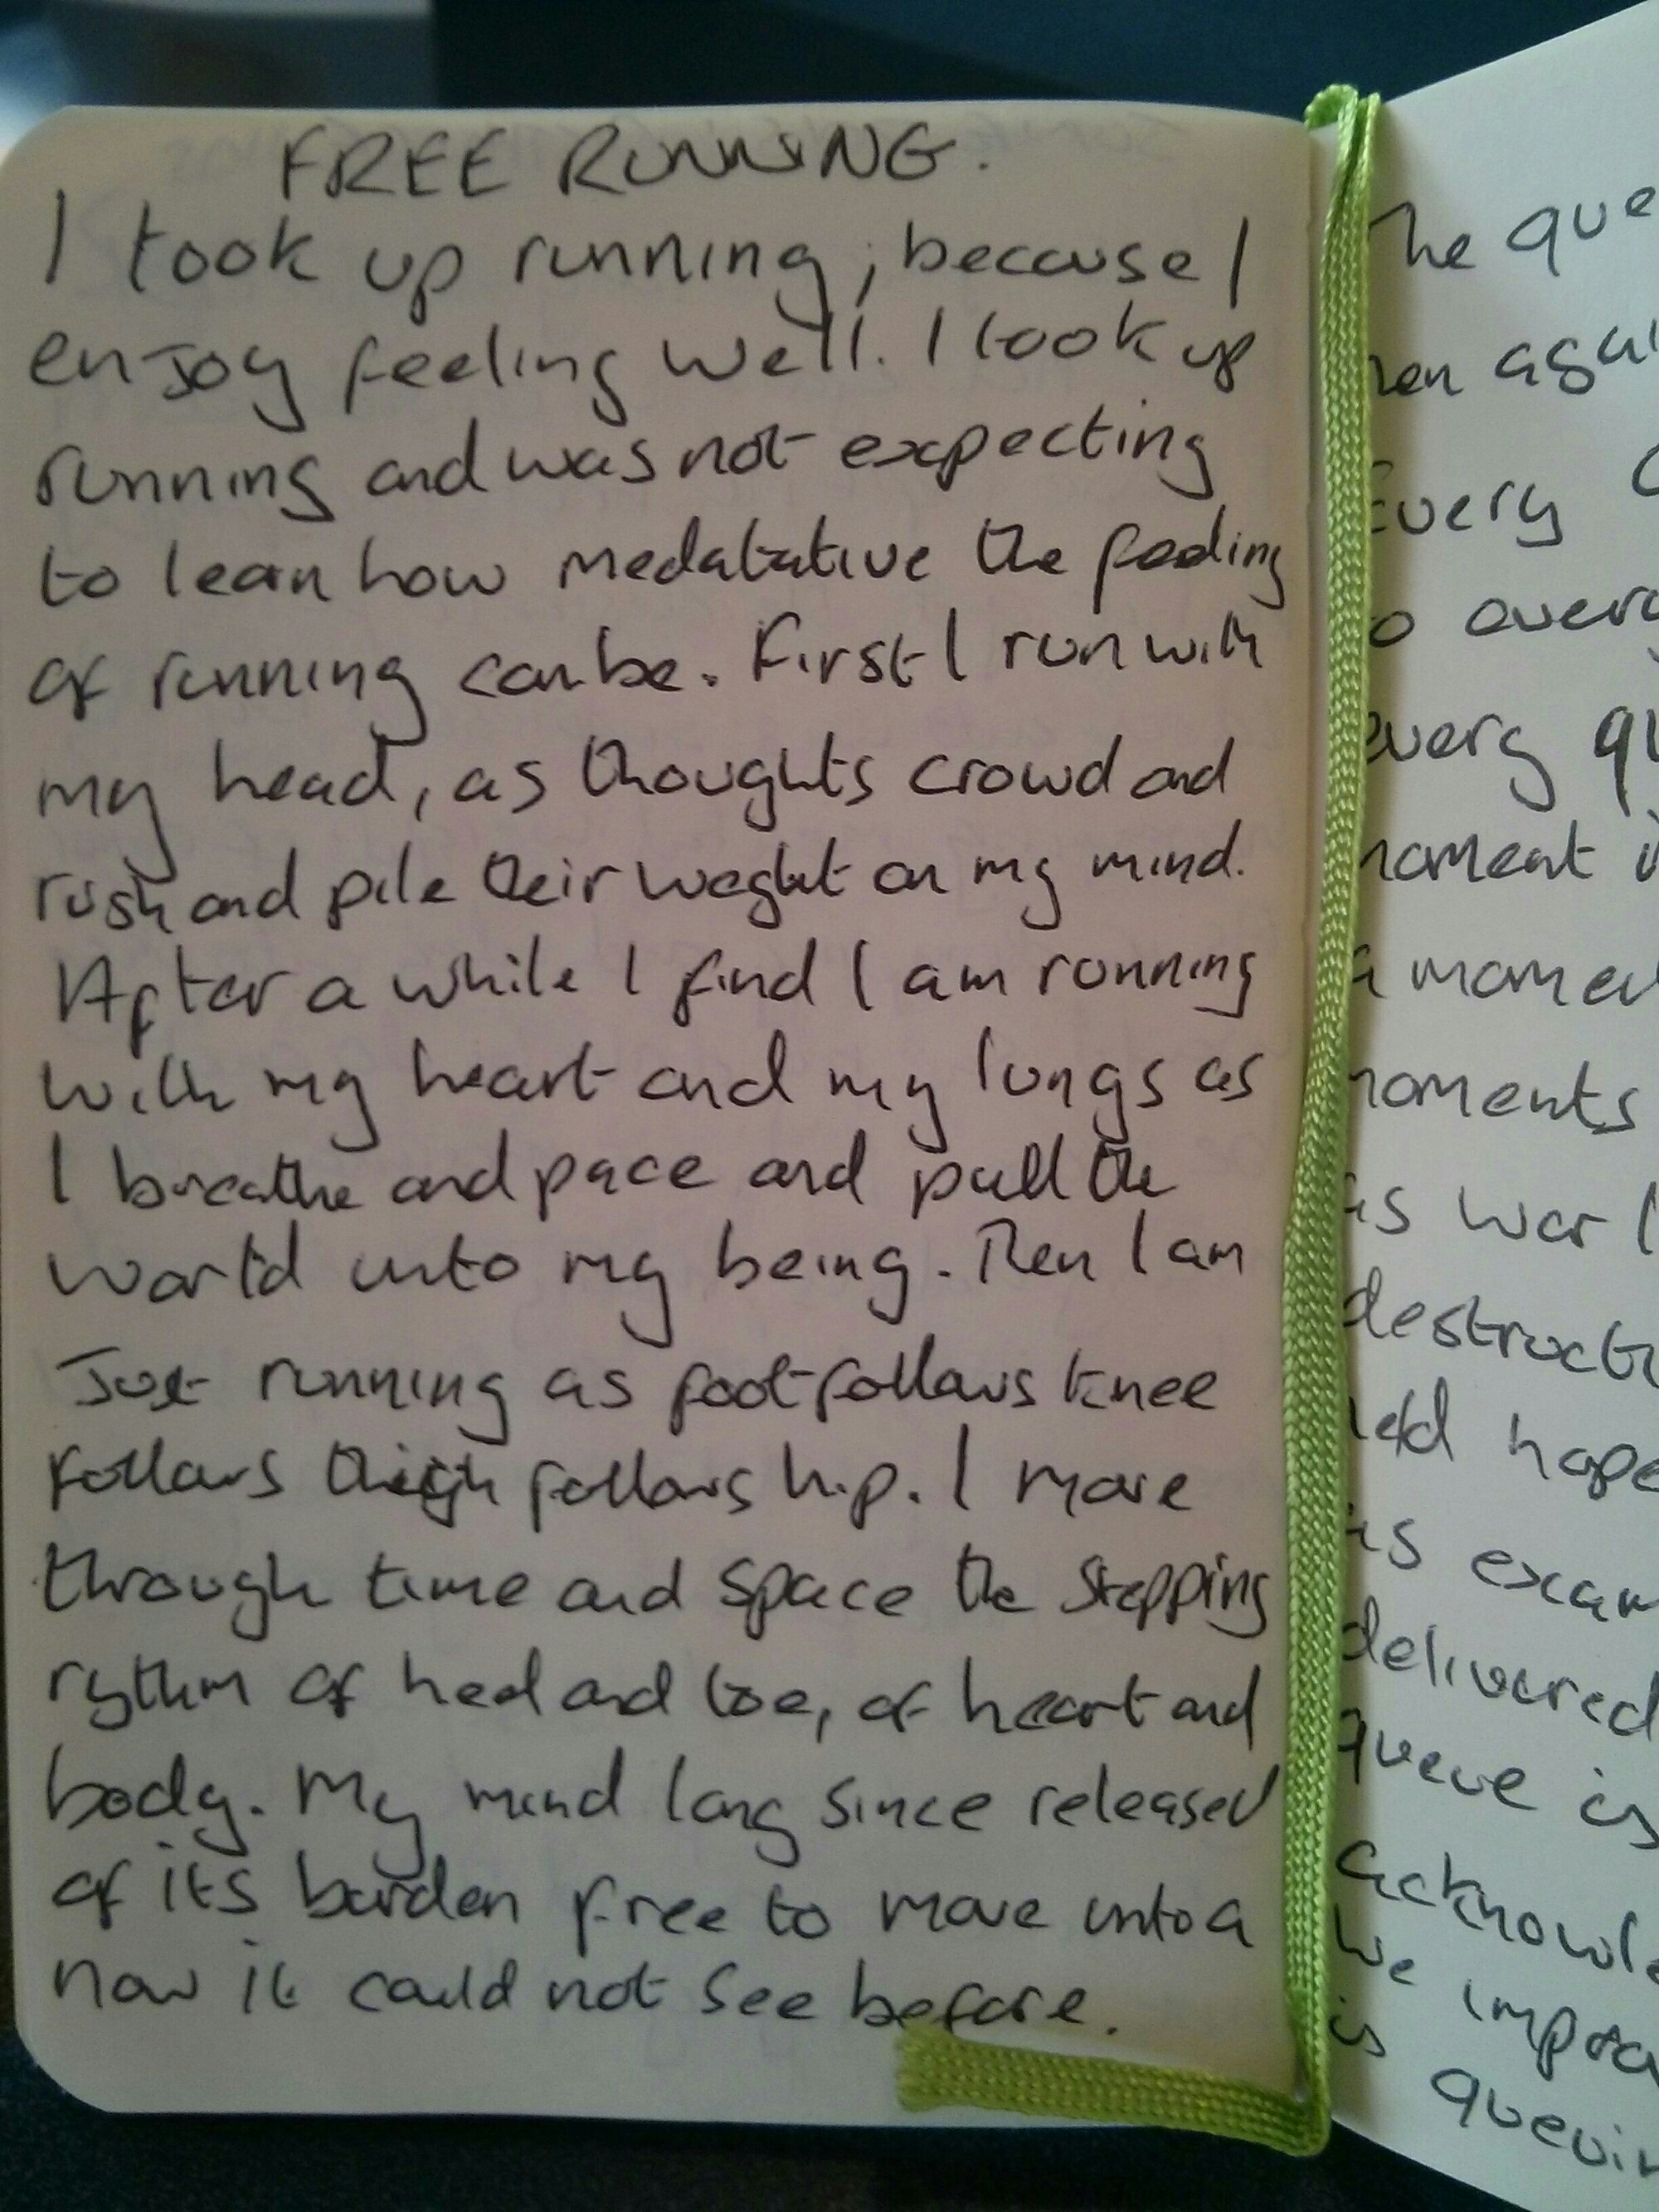 FREE RUNNING.
I took up running, because I
enjoy feeling well. I took up
running and was not expecting
to learn how medatative the feeling
of running can be. First I run with
my head, as thoughts crowd and
rush and pile their weight on my mind.
After a while I find I am running
with my heart and my lungs as
I breathe and pace and pull the
world into my being. Then I am
Just running as foot follows knee
follows thigh follows hip. I move
through time and space the stepping
rythm of heel and toe, of heart and
body. My mind long since released
of its burden free to move into a
now it could not see before.
he que
en agai
Every
o every
every qu
moment i
a momen
moments
as war
destructi
held hope
as exam
delivered
queue is
acknowle
we impor
is queuin